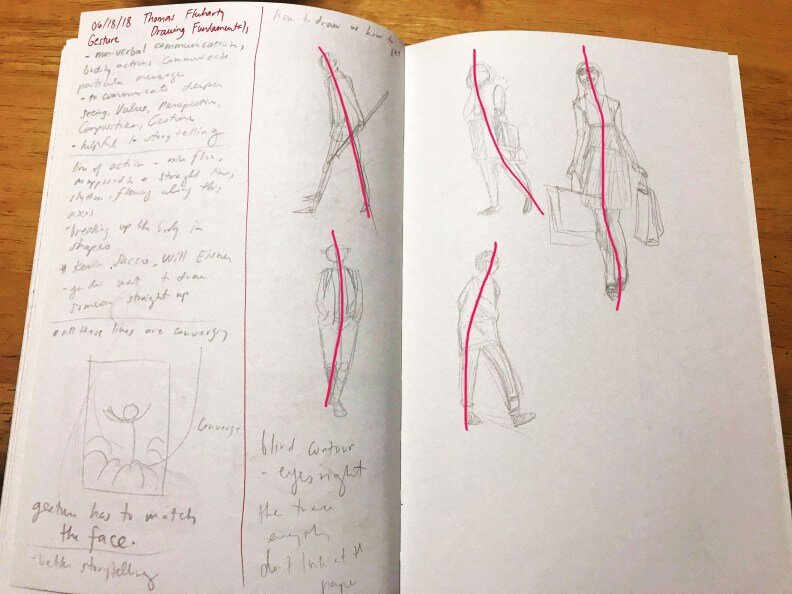 06/18/18 Thomas Fluharty
Gesture Drawing Fundamentals
- non-verbal communication,
bodily actions communicate
particular message
- to communicate deeper
seeing, Value, Perspective,
Composition, Gesture
- helpful in storytelling
line of action - main flow,
as opposed to a straight line,
rhythm, flowing along this
axis
- breaking up the body in
shapes
* Kevin Sacco, Will Eisner
- you don't want to draw
someone straight up
all these lines are converging
Converge
gesture has to match
the face.
- better storytelling
how to draw vs how to
see
blind contour
- eyes right
then trace
everything
don't look at the
paper